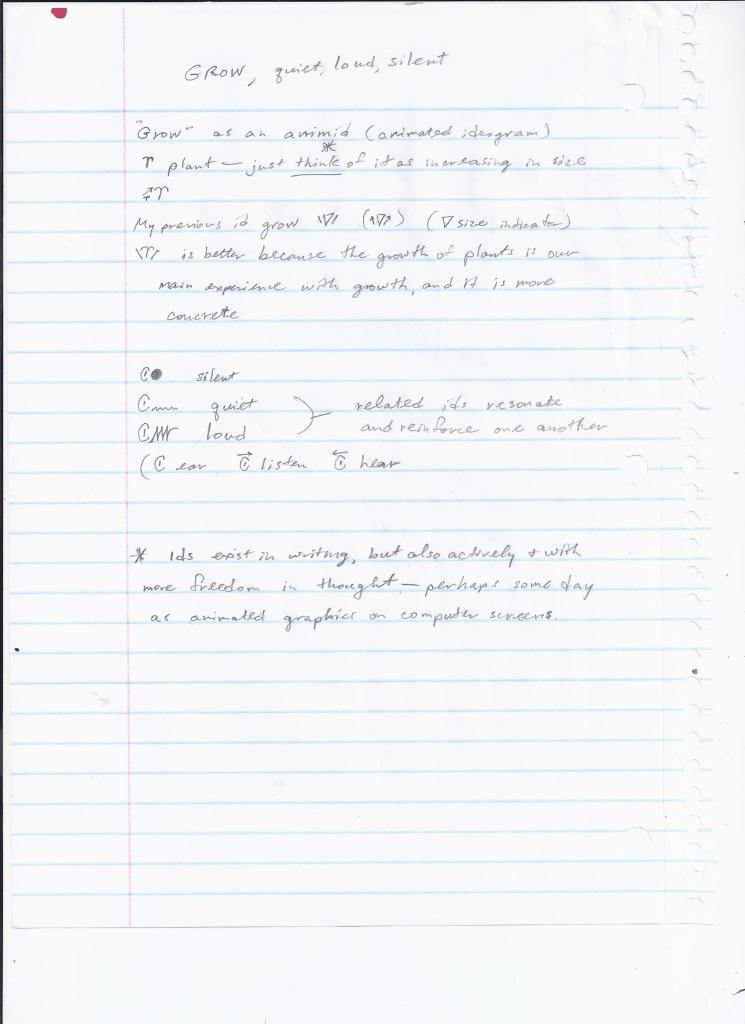 GROW, quiet, loud, silent
"Grow" as an animid (animated ideogram)
plant — just think* of it as increasing in size
My previous id grow \▽/ (↑▽↗) (▽ size indicator)
is better because the growth of plants is our
main experience with growth, and it is more
concrete
silent
quiet
loud
related ids resonate
and reinforce one another
( ear listen hear
* Ids exist in writing, but also actively + with
more freedom in thought — perhaps some day
as animated graphics on computer screens.